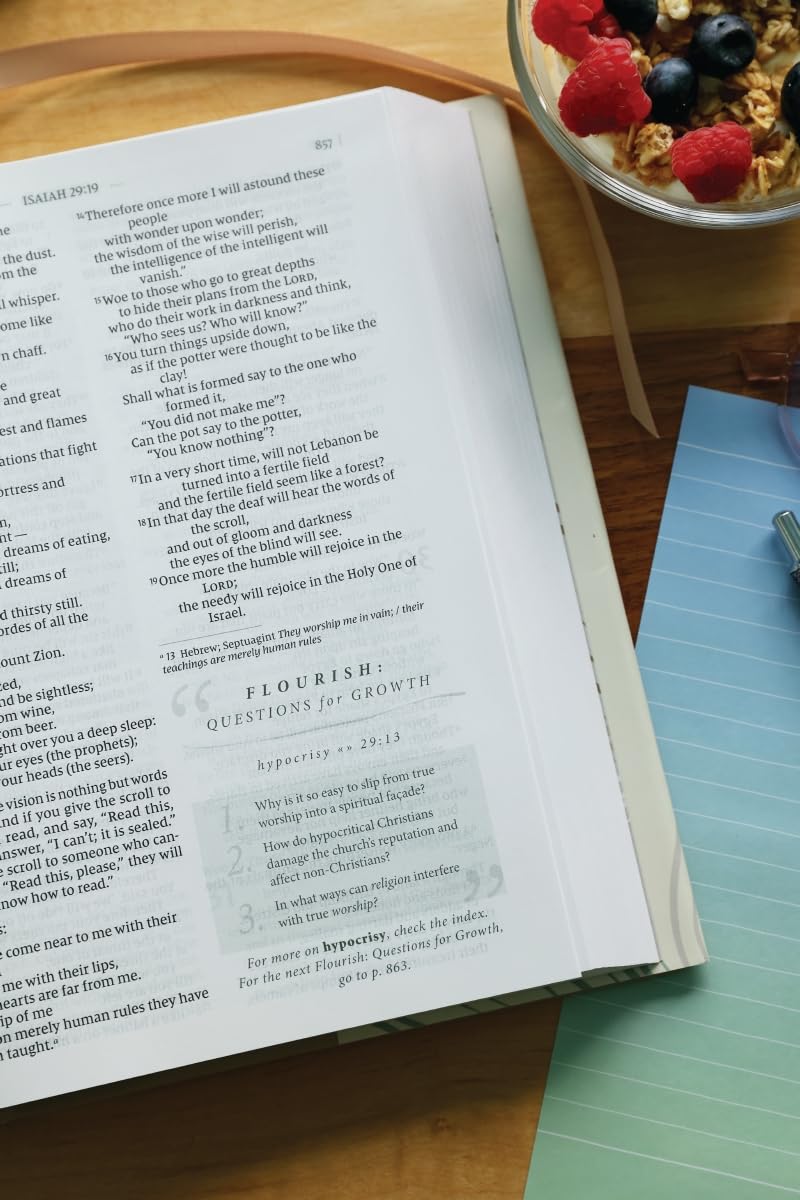 ISAIAH 29:19
857
the dust.
om the
ll whisper.
ome like
n chaff.
and great
est and flames
ations that fight
ortress and
nt—
dreams of eating,
till;
dreams of
d thirsty still.
ordes of all the
ount Zion.
zed,
nd be sightless;
om wine,
rom beer.
ght over you a deep sleep:
ur eyes (the prophets);
our heads (the seers).
e vision is nothing but words
nd if you give the scroll to
read, and say, “Read this,
nswer, “I can’t; it is sealed.”
e scroll to someone who can-
“Read this, please,” they will
now how to read.”
s:
e come near to me with their
me with their lips,
hearts are far from me.
ip of me
on merely human rules they have
n taught.a
14Therefore once more I will astound these
people
with wonder upon wonder;
the wisdom of the wise will perish,
the intelligence of the intelligent will
vanish.”
15Woe to those who go to great depths
to hide their plans from the LORD,
who do their work in darkness and think,
“Who sees us? Who will know?”
16You turn things upside down,
as if the potter were thought to be like the
clay!
Shall what is formed say to the one who
formed it,
“You did not make me”?
Can the pot say to the potter,
“You know nothing”?
17In a very short time, will not Lebanon be
turned into a fertile field
and the fertile field seem like a forest?
18In that day the deaf will hear the words of
the scroll,
and out of gloom and darkness
the eyes of the blind will see.
19Once more the humble will rejoice in the
LORD;
the needy will rejoice in the Holy One of
Israel.
a 13 Hebrew; Septuagint They worship me in vain; / their
teachings are merely human rules
“
FLOURISH:
QUESTIONS for GROWTH
hypocrisy «» 29:13
1. Why is it so easy to slip from true
worship into a spiritual façade?
2. How do hypocritical Christians
damage the church’s reputation and
affect non-Christians?
3. In what ways can religion interfere
with true worship?
”
For more on hypocrisy, check the index.
For the next Flourish: Questions for Growth,
go to p. 863.